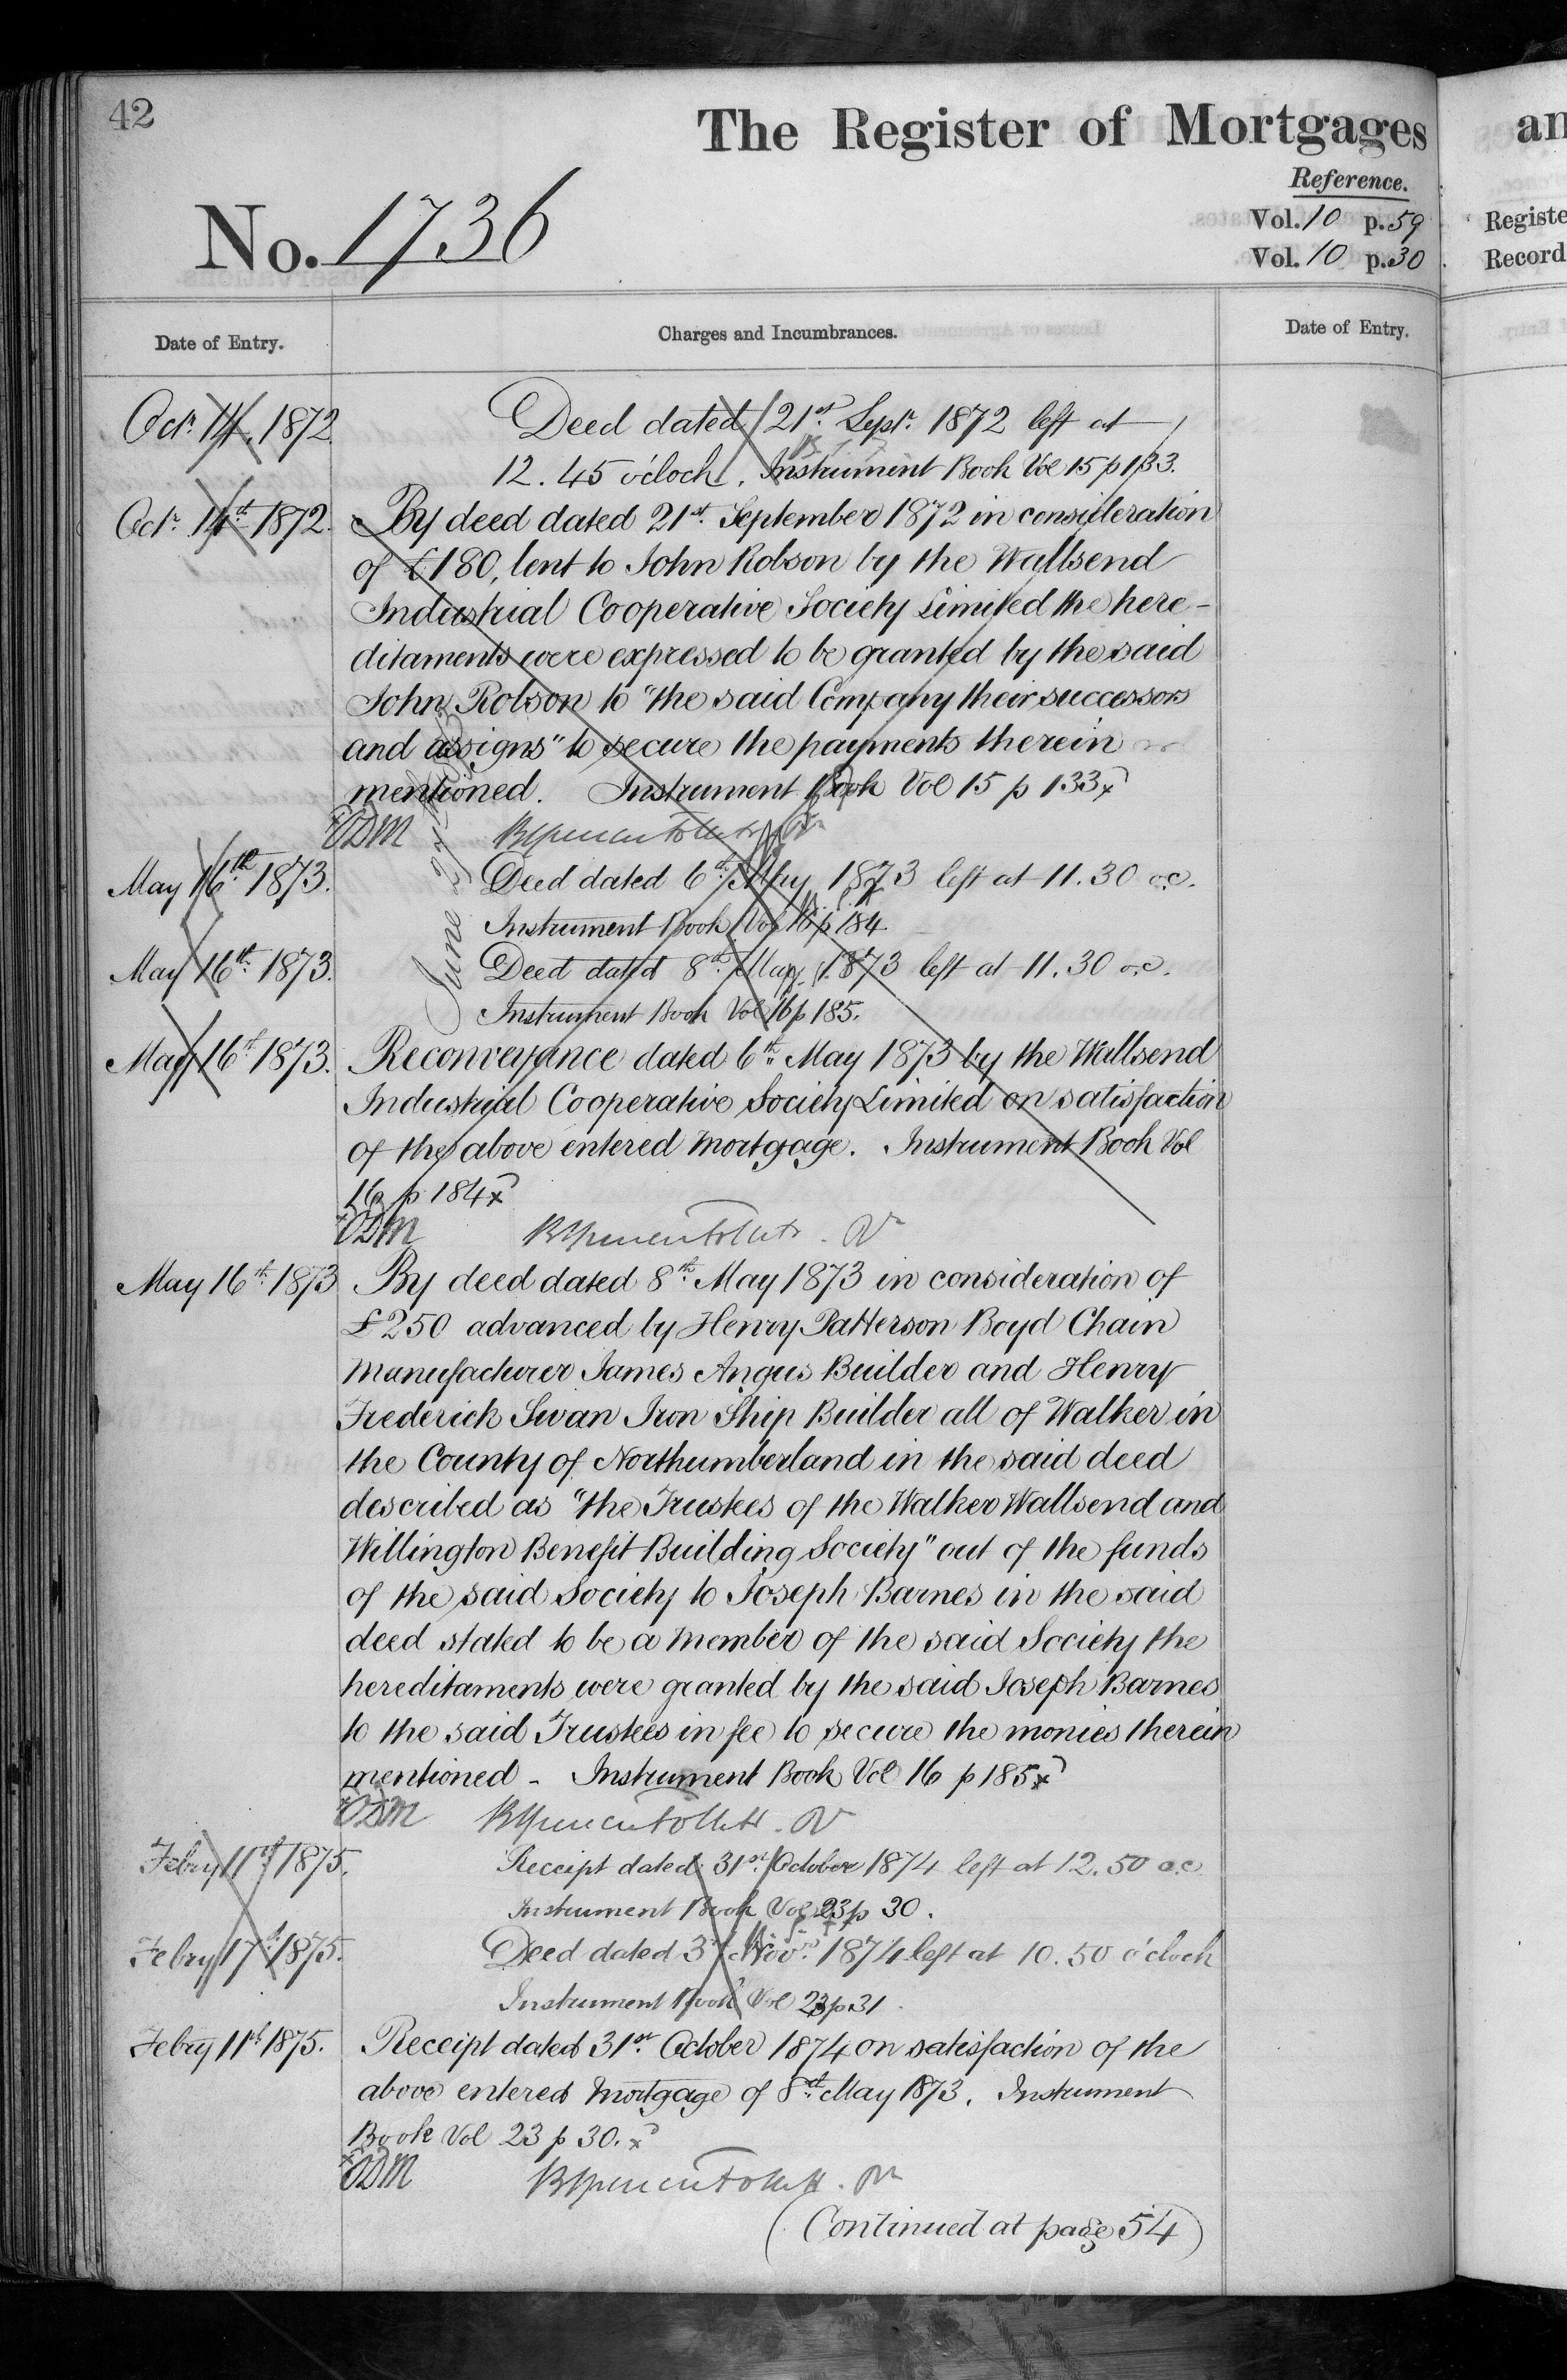 42
The Register of Mortgages
Reference.
No. 1736
Vol. 10 p. 59
Vol. 10 p. 30
Date of Entry.
Charges and Incumbrances.
Date of Entry.
Octr. 14. 1872.
Deed dated 21st. Septr. 1872 left at
12.45 o'clock. Instrument Book Vol 15 p 133.
Octr. 14th 1872.
By deed dated 21st. September 1872 in consideration
of £180, lent to John Robson by the Wallsend
Industrial Cooperative Society Limited the here-
ditaments were expressed to be granted by the said
John Robson to "the said Company their successors
and assigns" to secure the payments therein
mentioned. Instrument Book Vol 15 p 133x
ODM
May 16th. 1873.
Deed dated 6th. May 1873 left at 11.30 o.c.
Instrument Book Vol 16 p 184
May 16th. 1873.
Deed dated 8th. May 1873 left at 11.30 o.c.
Instrument Book Vol 16 p 185.
June
May 16th 1873.
Reconveyance dated 6th. May 1873 by the Wallsend
Industrial Cooperative Society Limited on satisfaction
of the above entered Mortgage. Instrument Book Vol
16 p 184x
ODM
May 16th. 1873
By deed dated 8th. May 1873 in consideration of
£250 advanced by Henry Patterson Boyd Chain
Manufacturer James Angus Builder and Henry
Frederick Swan Iron Ship Builder all of Walker in
the County of Northumberland in the said deed
described as "the Trustees of the Walker Wallsend and
Willington Benefit Building Society" out of the funds
of the said Society to Joseph Barnes in the said
deed stated to be a Member of the said Society the
hereditaments were granted by the said Joseph Barnes
to the said Trustees in fee to secure the monies therein
mentioned - Instrument Book Vol 16 p 185x
ODM
Febry 11th 1875.
Receipt dated 31st. October 1874 left at 12.50 o.c
Instrument Book Vol 23 p 30.
Febry 17th 1875.
Deed dated 3rd Novr. 1874 left at 10.50 o'clock
Instrument Book Vol 23 p 31
Febry 11th 1875.
Receipt dated 31st. October 1874 on satisfaction of the
above entered Mortgage of 8th. May 1873. Instrument
Book Vol 23 p 30.x
ODM
(Continued at page 54)
an
Registe
Record